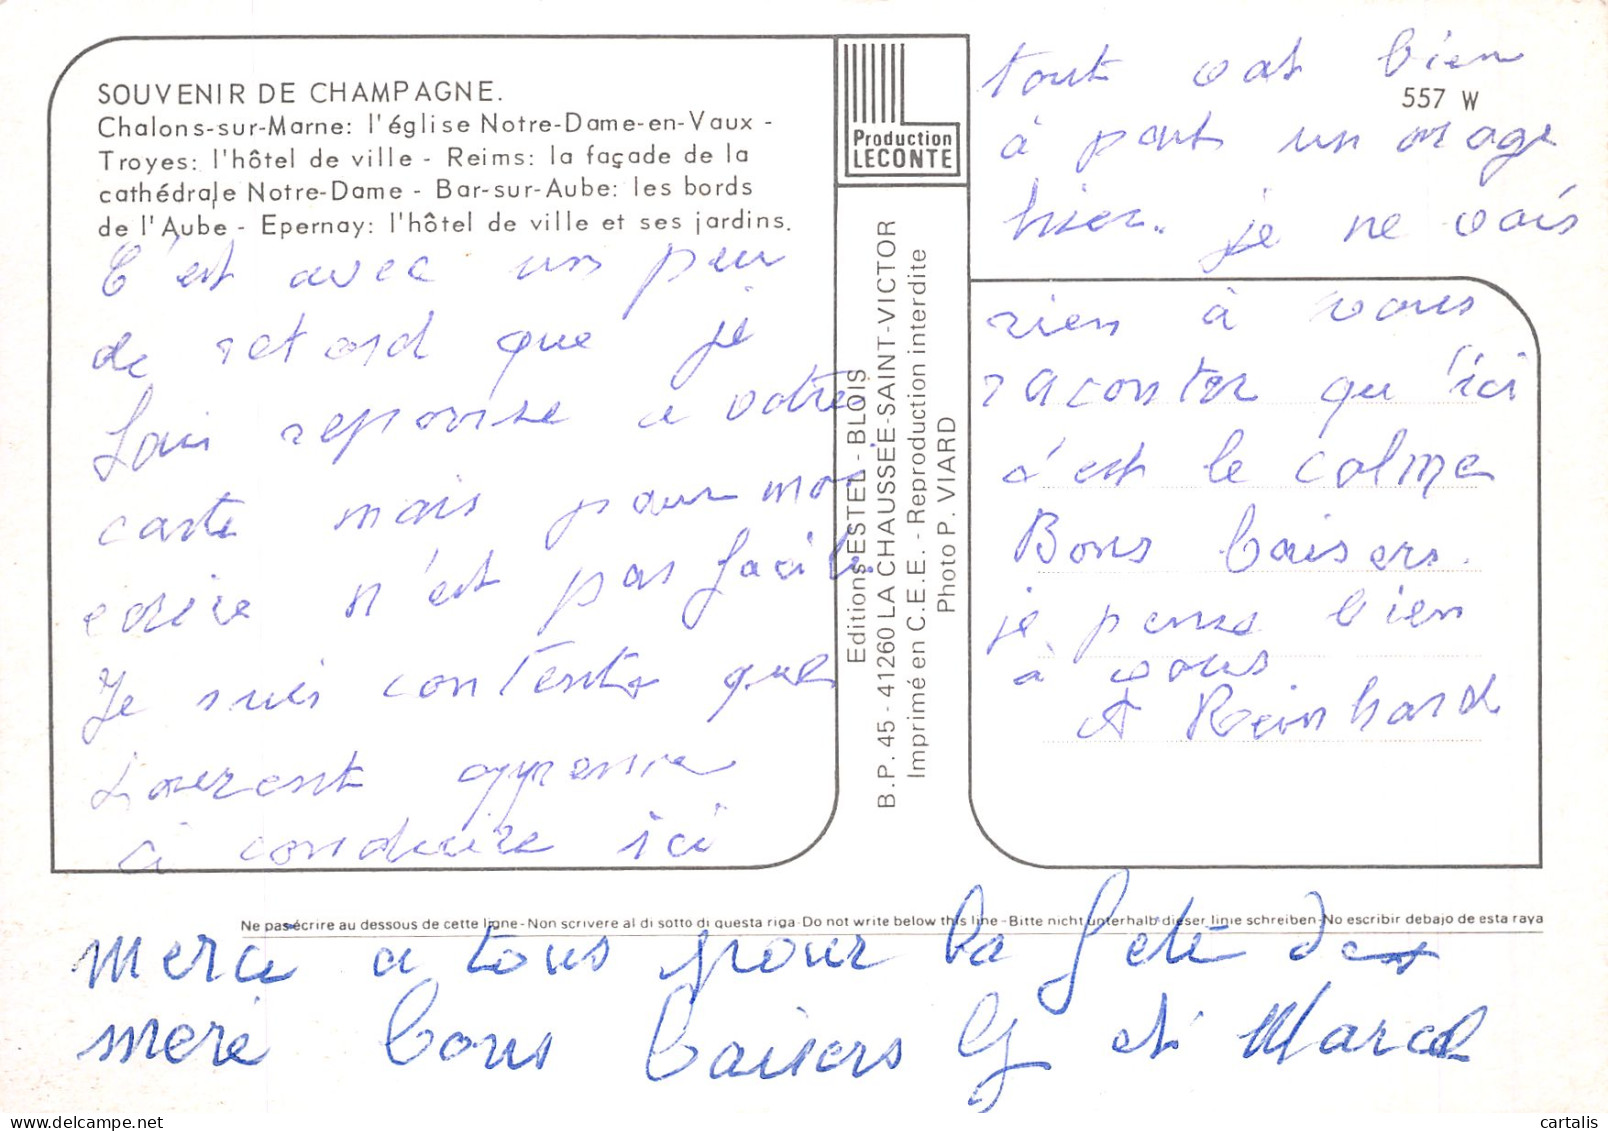 SOUVENIR DE CHAMPAGNE.
Chalons-sur-Marne: l'église Notre-Dame-en-Vaux -
Troyes: l'hôtel de ville - Reims: la façade de la
cathédrale Notre-Dame - Bar-sur-Aube: les bords
de l'Aube - Epernay: l'hôtel de ville et ses jardins.
C'est avec un peu
de retard que je
fais reponse a votre
carte mais pour moi
ecrire n'est pas facile
Je suis contente que
Laurent apprenne
a conduire ici
Production
LECONTE
Editions ESTEL - BLOIS
B.P. 45 - 41260 LA CHAUSSÉE-SAINT-VICTOR
Imprimé en C.E.E. - Reproduction interdite
Photo P. VIARD
557 W
tout vat bien
à part un orage
hier. je ne vais
rien à vous
raconter qu'ici
c'est le calme
Bons baisers.
je pense bien
à vous
A Reinhard
Ne pas écrire au dessous de cette ligne - Non scrivere al di sotto di questa riga - Do not write below this line - Bitte nicht unterhalb dieser linie schreiben - No escribir debajo de esta raya
merci a tous pour la fete des
mere bons baisers G et Marcel
cartalis
delcampe.net